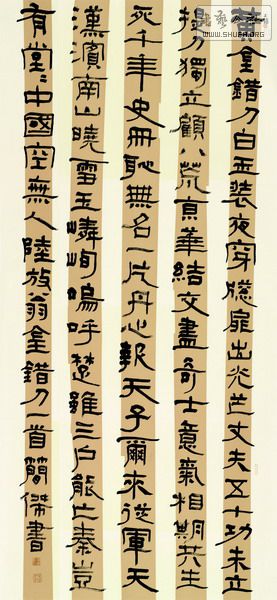 黃金錯刀白玉裝夜穿牕扉出光芒丈夫五十功未立
提刀獨立顧八荒京華結交盡奇士意氣相期共生
死千年史冊恥無名一片丹心報天子爾來從軍天
漢濱南山曉雪玉嶙峋嗚呼楚雖三戶能亡秦豈
有堂〻中國空無人陸放翁金錯刀一首簡傑書
WWW.SHUFA.ORG